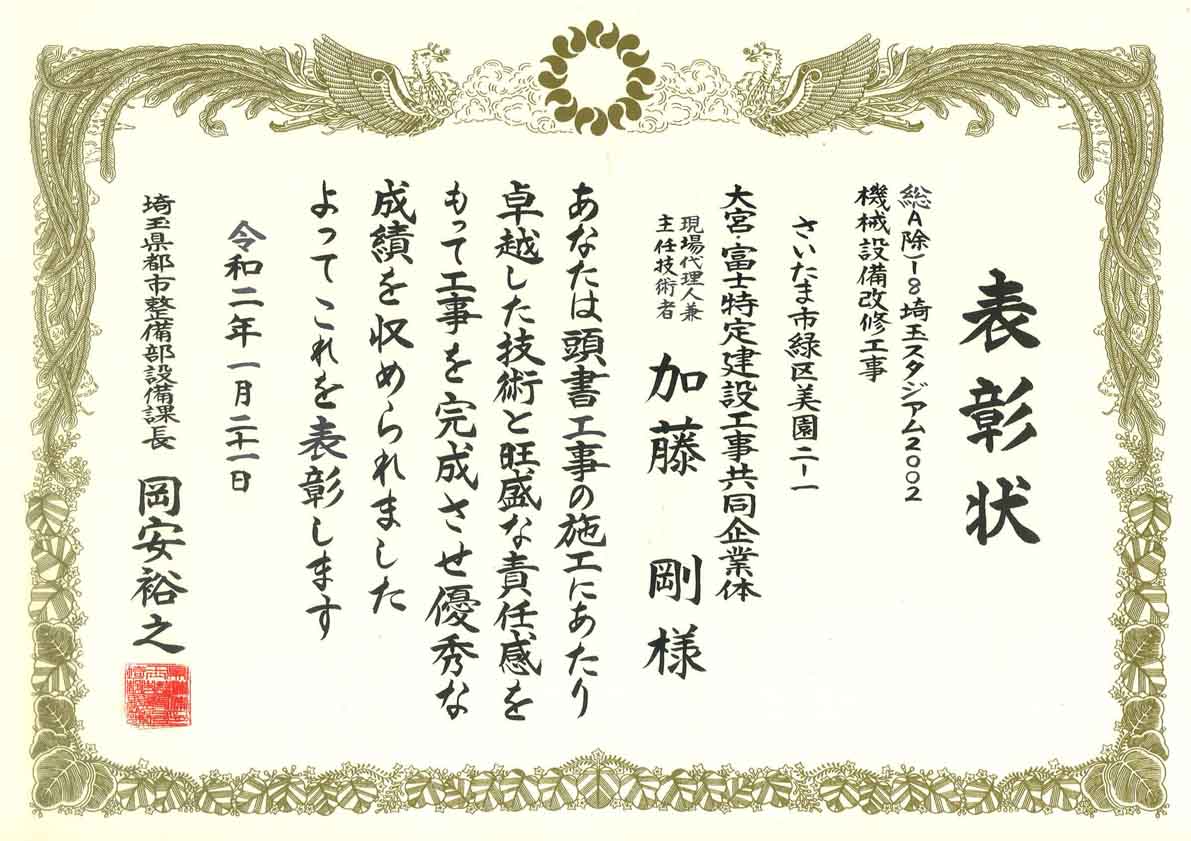 表彰状
総A除)-8埼玉スタジアム2002
機械設備改修工事
さいたま市緑区美園二-一
大宮・富士特定建設工事共同企業体
現場代理人兼
主任技術者
加藤 剛様
あなたは頭書工事の施工にあたり
卓越した技術と旺盛な責任感を
もって工事を完成させ優秀な
成績を収められました
よってこれを表彰します
令和二年一月二十一日
埼玉県都市整備部設備課長 岡安裕之